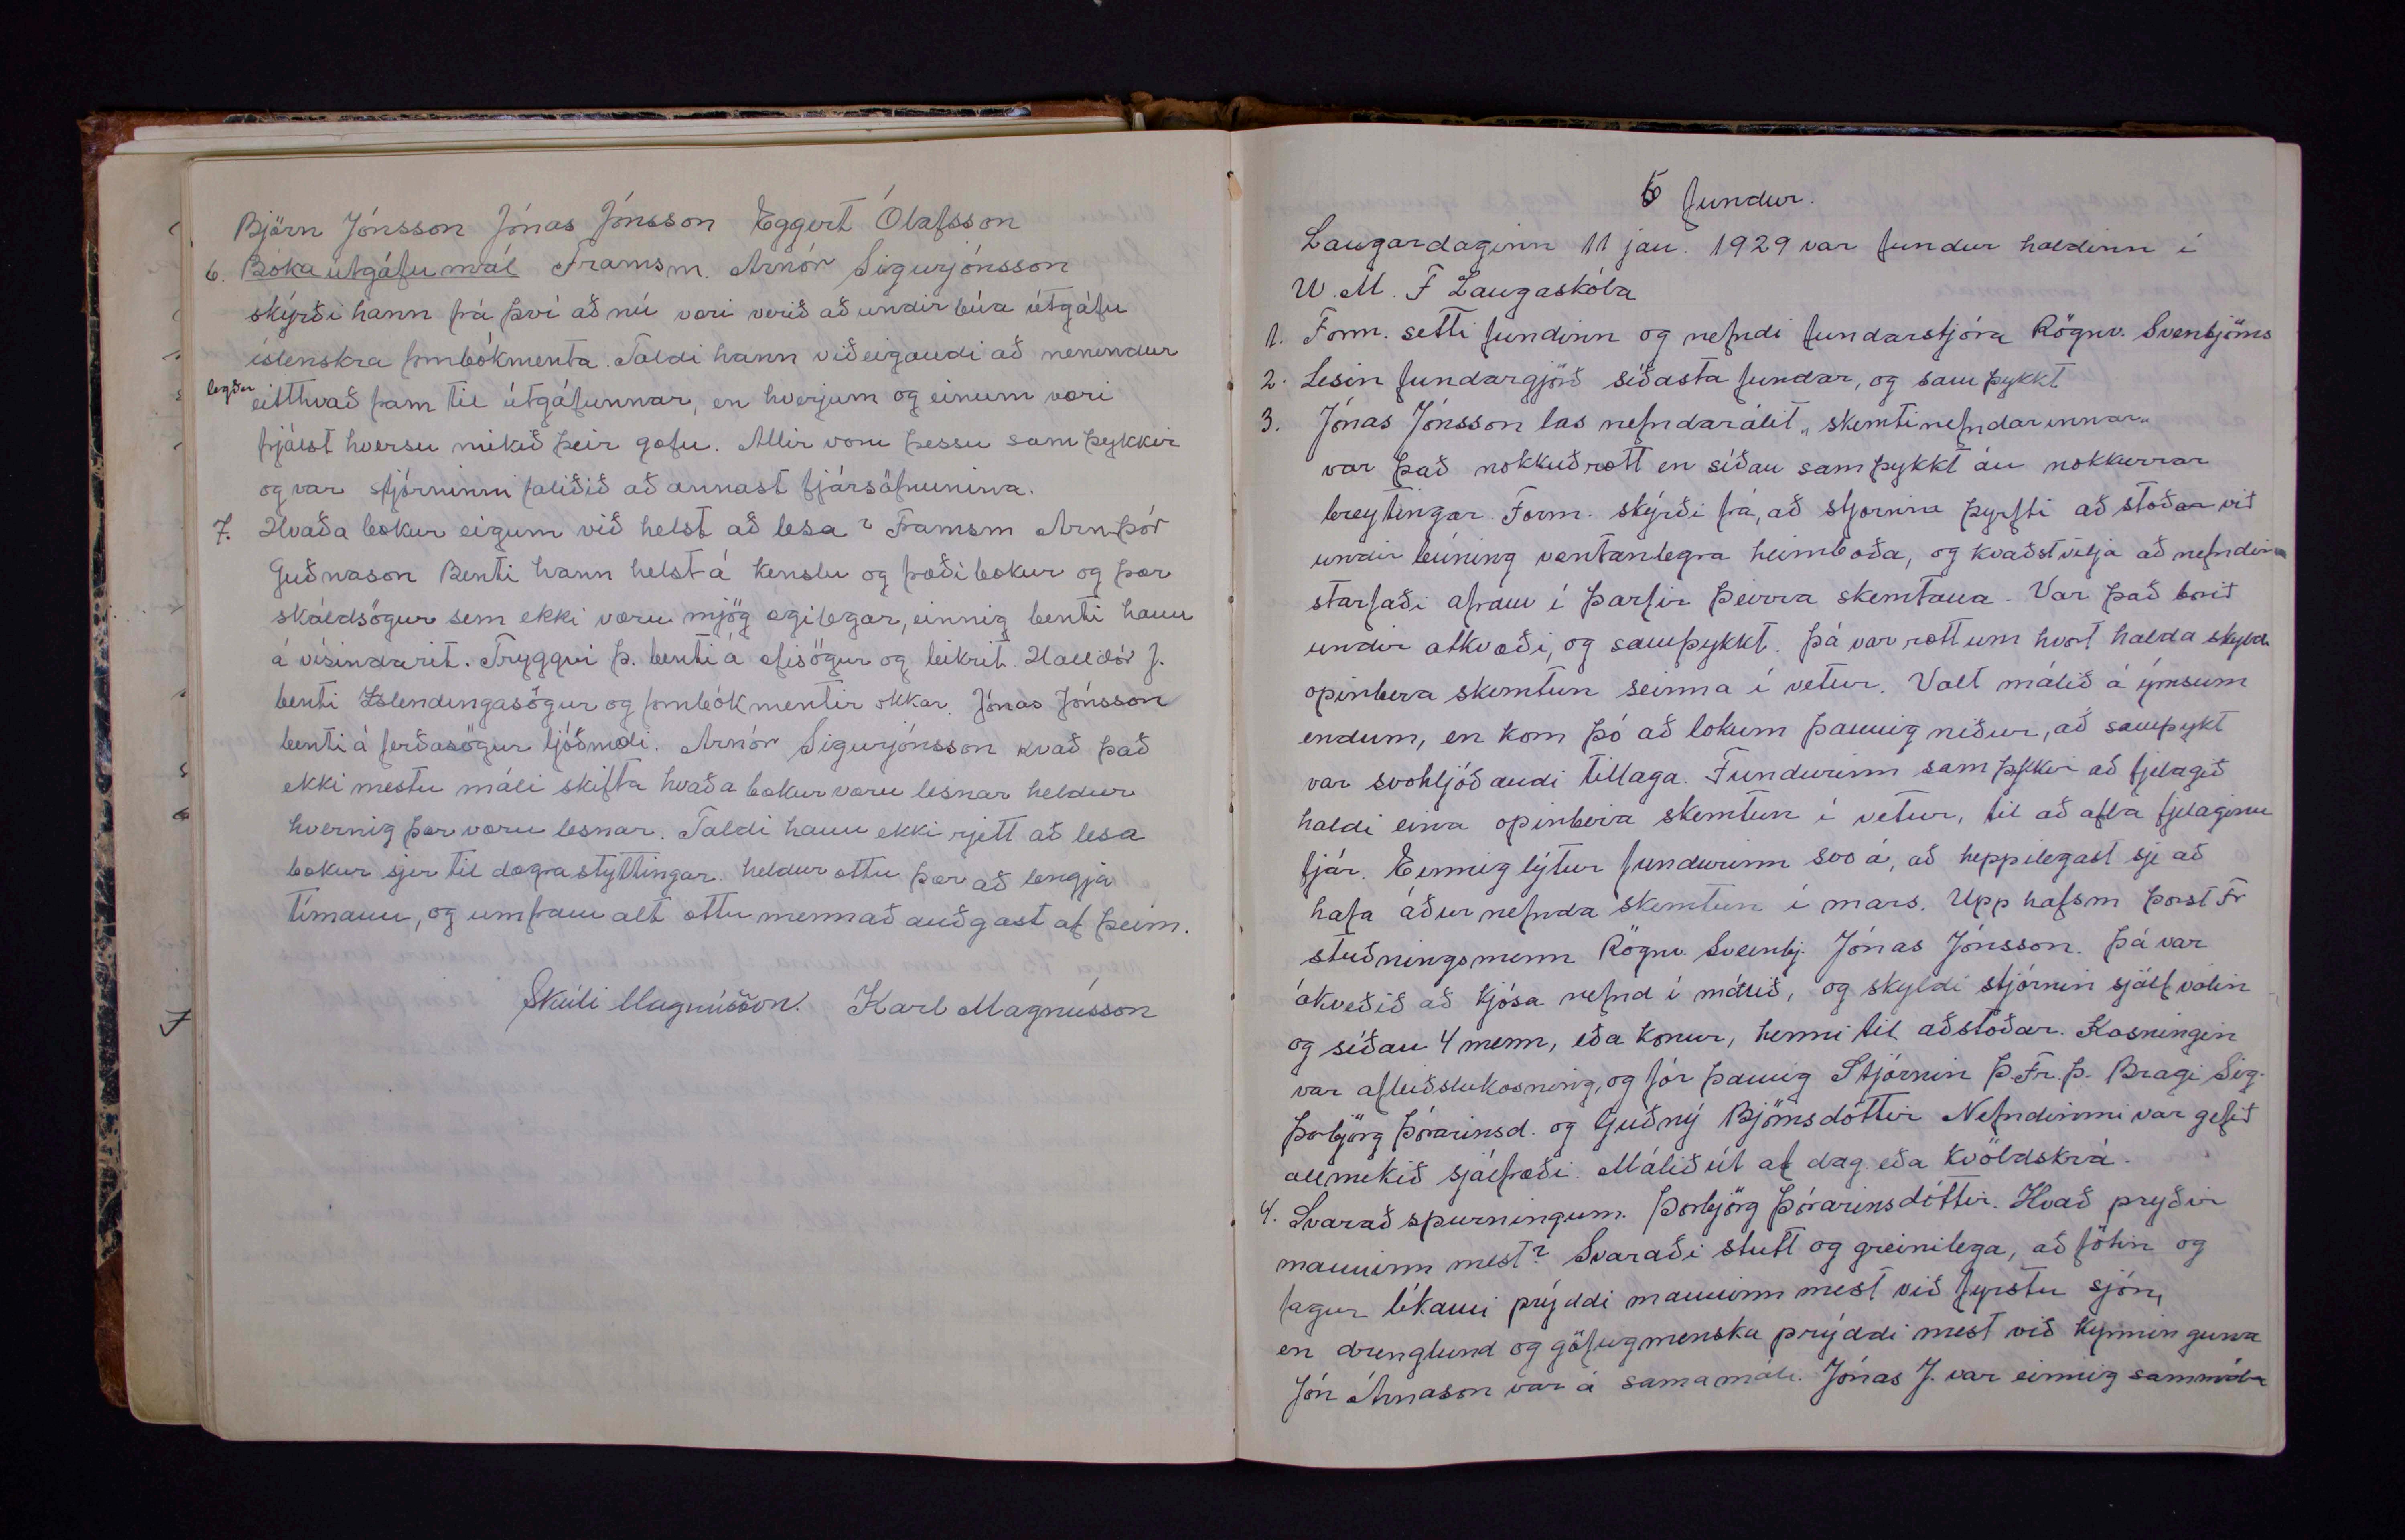 Björn Jónsson Jónas Jónsson Eggert Ólafsson
6. Bókaútgáfumál Framsm. Arnór Sigurjónsson
skýrði hann frá því að nú væri verið að undirbúa útgáfu
íslenskra fornbókmenta. Taldi hann viðeigandi að nemendur
legðu eitthvað fram til útgáfunnar, en hverjum og einum væri
frjálst hversu mikið þeir gæfu. Allir voru þessu samþykkir
og var stjórninni falið að annast fjársöfnunina.
7. Hvaða bækur eigum við helst að lesa? Framsm Arnþór
Guðnason Benti hann helst á kenslu og fræðibækur og þær
skáldsögur sem ekki væru mjög ægilegar, einnig benti hann
á vísindarit. Tryggvi Þ. benti á æfisögur og leikrit. Halldór J.
benti Íslendingasögur og fornbókmentir okkar. Jónas Jónsson
benti á ferðasögur ljóðmæli. Arnór Sigurjónsson kvað það
ekki mestu máli skifta hvaða bækur væru lesnar heldur
hvernig þær væru lesnar. Taldi hann ekki rjett að lesa
bækur sjer til dægrastyttingar. heldur ættu þær að lengja
tímann, og umfram alt ættu menn að auðgast af þeim.
Skúli Magnússon. Karl Magnússon
5 fundur.
Laugardaginn 11 jan. 1929 var fundur haldinn í
U. M. F Laugaskóla
1. Form. setti fundinn og nefndi fundarstjóra Rögnv. Sveinbjörns
2. Lesin fundargjörð síðasta fundar, og samþykkt
3. Jónas Jónsson las nefndarálit „skemtinefndarinnar„
var það nokkuð rætt en síðan samþykkt án nokkurrar
breytingar. Form. skýrði frá, að stjornina þyrfti að stoðar við
undirbúning væntanlegra heimboða, og kvaðst vilja að nefndin
starfaði áfram í þarfir þeirra skemtana. Var það borið
undir atkvæði, og samþykkt. Þá var rætt um hvort halda skyldi
opinbera skemtun seinna í vetur. Valt málið á ýmsum
endum, en kom þó að lokum þannig niður, að samþykt
var svohljóðandi tillaga. Fundurinn samþykkir að fjelagið
haldi eina opinbera skemtun í vetur, til að afla fjelaginu
fjár. Einnig lýtur fundurinn svo á, að heppilegast sje að
hafa áður nefnda skemtun í mars. Upp hafsm Þorst Fr
stuðningsmenn Rögnv. Sveinbj. Jónas Jónsson. Þá var
ákveðið að kjósa nefnd í málið, og skyldi stjórnin sjálfvalin
og síðan 4 menn, eða konur, henni til aðstoðar. Kosningin
var afleiðslukosning, og fór þannig Stjórnin Þ. Fr. Þ. Bragi Sig.
Þorbjörg Þórarinsd. og Guðný Björnsdóttir Nefndinni var gefið
allmikið sjálfræði. Málið út af dag. eða kvöldskrá.
4. Svarað spurningum. Þorbjörg Þórarinsdóttir. Hvað prýðir
manninn mest? Svaraði stutt og greinilega, að fötin og
fagur líkami prýddi manninn mest við fyrstu sjón,
en drenglund og göfugmenska prýddi mest við kynninguna
Jón Árnason var á sama máli. Jónas J. var einnig sammála